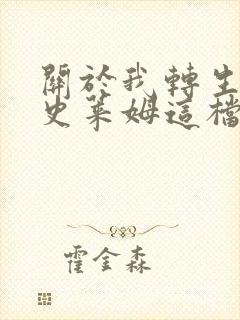 關於我轉生
史萊姆這檔
霍金森